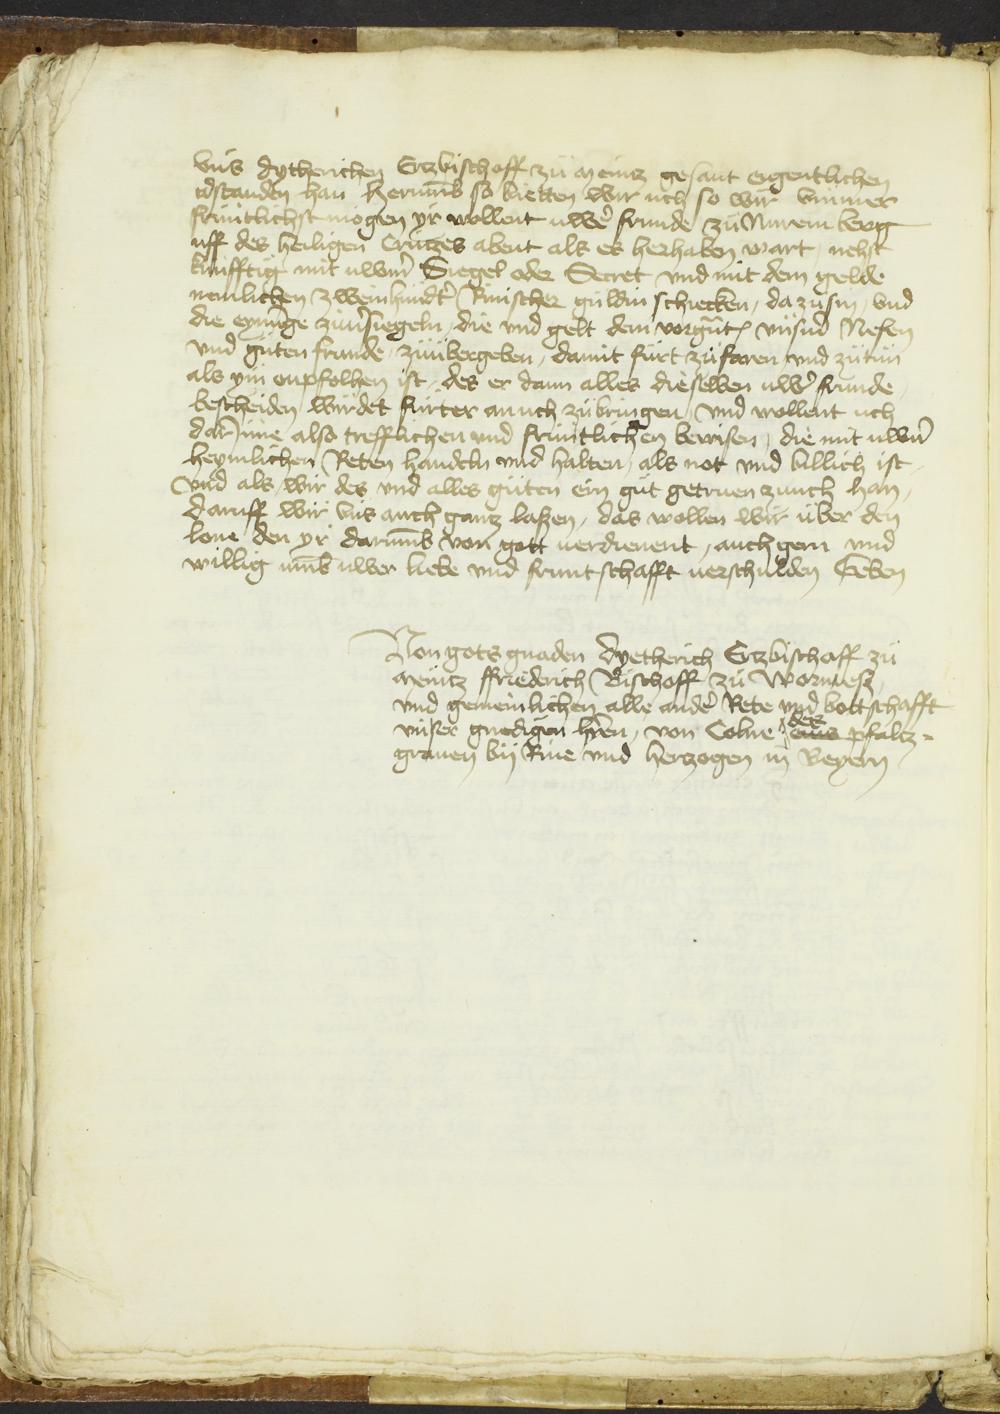 vns dytherichen Erzbischoff zů meintz gesant eigentlichen
v̉standen han Herumb so bietten wir uch so wir ymmer
frűntlichst mogen yr wollent uwer̉ frunde zů Nuremberg
uff des heiligen Crutzes abent als es herhaben wart, nehst
kunfftig mit uwerm̉ Siegel oder Secret vnd mit dem gelde
nemlichen zweinhundert̉ Rinischer gűldin schicken, da zů sin, vnd
die eynunge zuủsiegeln, die vnd gelt dem vorgn̄ten vnserm̉ Nefen
vnd gůten frunde, zuůbergeben, damit fűrt zůfaren vnd zůtůn
als ym enpfolhen ist, des er dann alles dieselben uwer̉ frunde,
bescheiden wurdet fűrter an uch zůbringen, vnd wollent uch
dar ̉ inne also trefflichen vnd frűntlichen bewisen, die mit uwern̉
heymlichen Reten handeln vnd halten, als not vnd billich ist,
vnd als wir des vnd alles gůten ein gůt getruen zuuch han,
daruff wir vns auch gantz laßen, das wollen wir über den
lone den yr darumb von gott verdienent, auch gern vnd
willig umb uwer liebe vnd fruntschafft verschulden Geben
Von gots gnaden dyetherich Erzbischoff zů
meintz ffriederich Bischoff zů Wormesz,
vnd gemeinlichen alle ander̉ Rete vnd bottschafft
vnser gnedigen hern̄, von Colne der pfaltz=
grauen bij Rine vnd hertzogen in Beyern